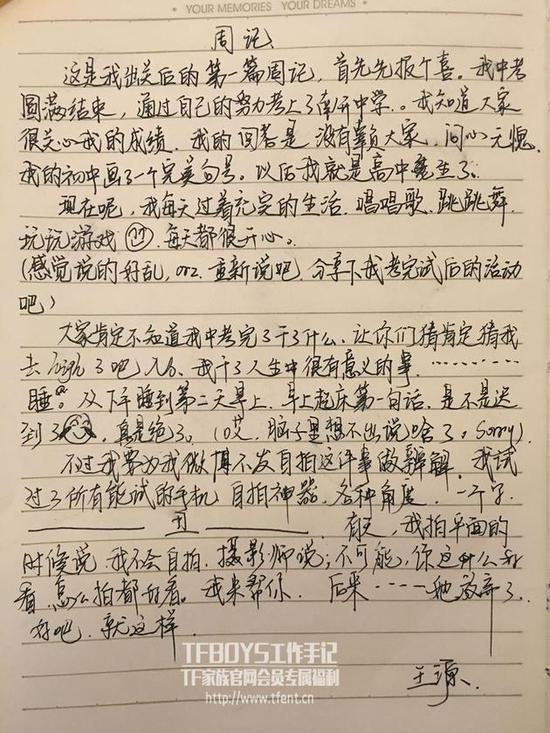 YOUR MEMORIES YOUR DREAMS
周记
这是我出关后的第一篇周记,首先先报个喜。我中考
圆满结束,通过自己的努力考上了南开中学。我知道大家
很关心我的成绩,我的回答是没有辜负大家,问心无愧
我的初中画了一个完美句号。以后我就是高中生了。
现在呢,我每天过着充实的生活.唱唱歌、跳跳舞
玩玩游戏 每天都很开心。
(感觉说的好乱,orz.重新说吧,分享下我考完试后的活动
吧)
大家肯定不知道我中考完了干了什么、让你们猜肯定猜我
去 了吧,No、我干了人生中很有意义的事.………
睡。从下午睡到第二天早上.早上起床第一句话.是不是迟
到了 真是绝了。(哎,脑子里想不出说啥了。Sorry)
不过我要为我微博不发自拍这件事做辩解.我试
过了所有能试的手机 自拍神器.各种角度.一个字
丑 有天,我拍平面的
时候说 我不会自拍.摄影师说;不可能,你这么好
看 怎么拍都好看。我来帮你.后来……她放弃了.
好吧.就这样
王源.
TFBOYS工作手记
TF家族官网会员专属福利
http://www.tfent.cn